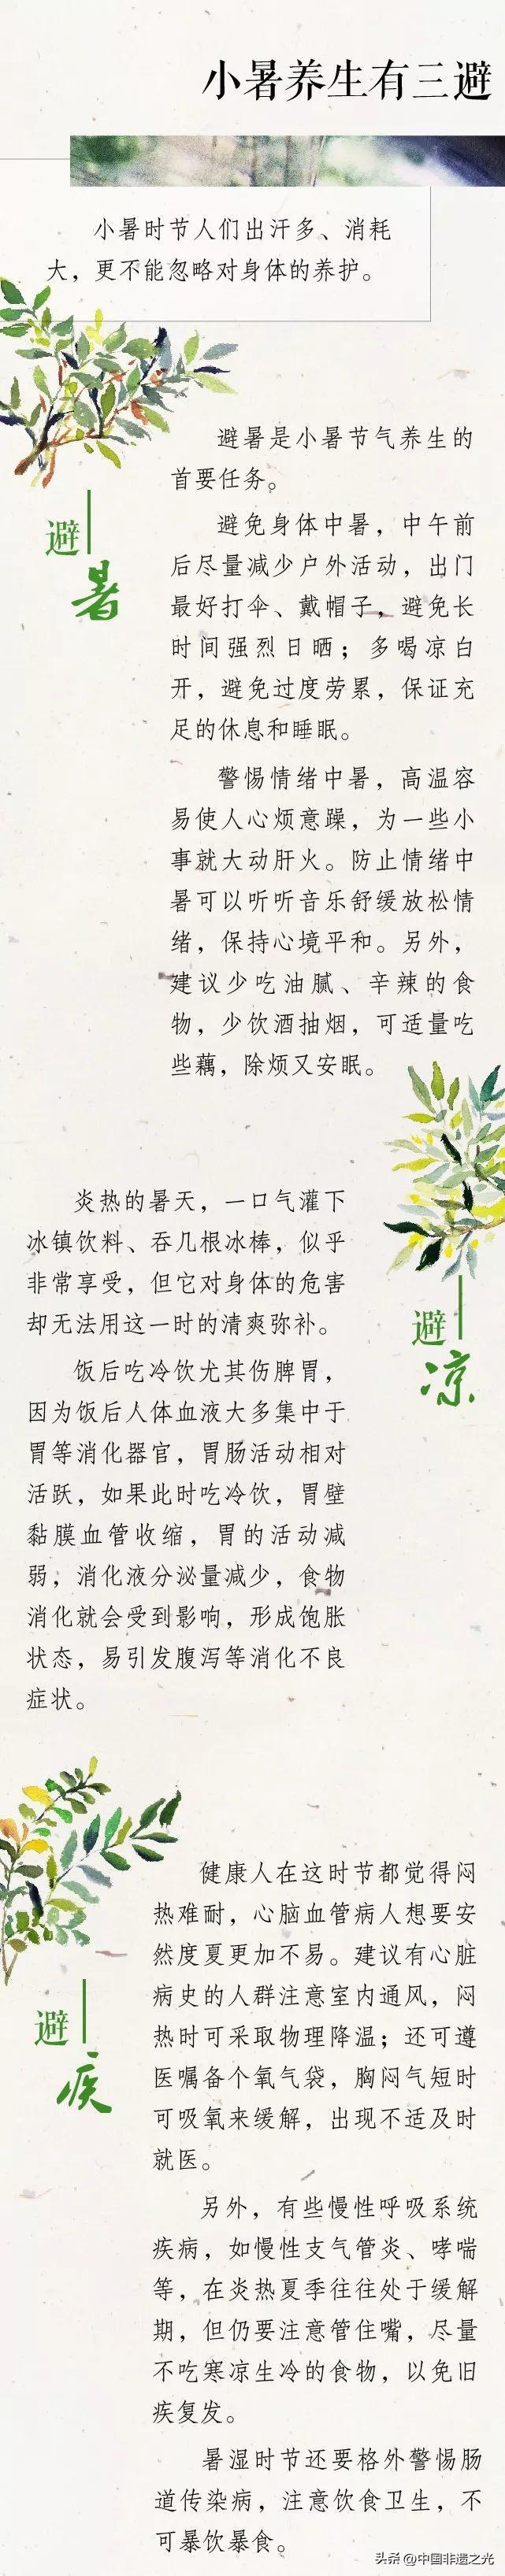 小暑养生有三避
小暑时节人们出汗多、消耗
大，更不能忽略对身体的养护。
避暑
避暑是小暑节气养生的
首要任务。
避免身体中暑，中午前
后尽量减少户外活动，出门
最好打伞、戴帽子，避免长
时间强烈日晒；多喝凉白
开，避免过度劳累，保证充
足的休息和睡眠。
警惕情绪中暑，高温容
易使人心烦意躁，为一些小
事就大动肝火。防止情绪中
暑可以听听音乐舒缓放松情
绪，保持心境平和。另外，
建议少吃油腻、辛辣的食
物，少饮酒抽烟，可适量吃
些藕，除烦又安眠。
避凉
炎热的暑天，一口气灌下
冰镇饮料、吞几根冰棒，似乎
非常享受，但它对身体的危害
却无法用这一时的清爽弥补。
饭后吃冷饮尤其伤脾胃，
因为饭后人体血液大多集中于
胃等消化器官，胃肠活动相对
活跃，如果此时吃冷饮，胃壁
黏膜血管收缩，胃的活动减
弱，消化液分泌量减少，食物
消化就会受到影响，形成饱胀
状态，易引发腹泻等消化不良
症状。
避疾
健康人在这时节都觉得闷
热难耐，心脑血管病人想要安
然度夏更加不易。建议有心脏
病史的人群注意室内通风，闷
热时可采取物理降温；还可遵
医嘱备个氧气袋，胸闷气短时
可吸氧来缓解，出现不适及时
就医。
另外，有些慢性呼吸系统
疾病，如慢性支气管炎、哮喘
等，在炎热夏季往往处于缓解
期，但仍要注意管住嘴，尽量
不吃寒凉生冷的食物，以免旧
疾复发。
暑湿时节还要格外警惕肠
道传染病，注意饮食卫生，不
可暴饮暴食。
头条 @中国非遗之光